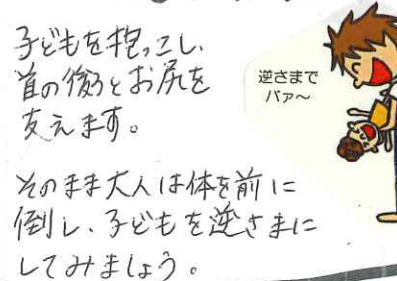 子どもを抱っこし、
首の後ろとお尻を
支えます。
そのまま大人は体を前に
倒し、子どもを逆さまに
してみましょう。
逆さまで
バァ〜